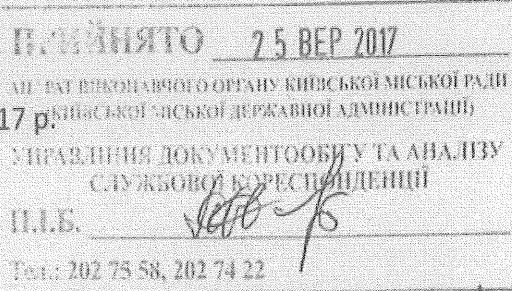 ПРИЙНЯТО 25 ВЕР 2017
АПАРАТ ВИКОНАВЧОГО ОРГАНУ КИЇВСЬКОЇ МІСЬКОЇ РАДИ
17 р. (КИЇВСЬКОЇ МІСЬКОЇ ДЕРЖАВНОЇ АДМІНІСТРАЦІЇ)
УПРАВЛІННЯ ДОКУМЕНТООБІГУ ТА АНАЛІЗУ
СЛУЖБОВОЇ КОРЕСПОНДЕНЦІЇ
П.І.Б.
Тел.: 202 75 58, 202 74 22